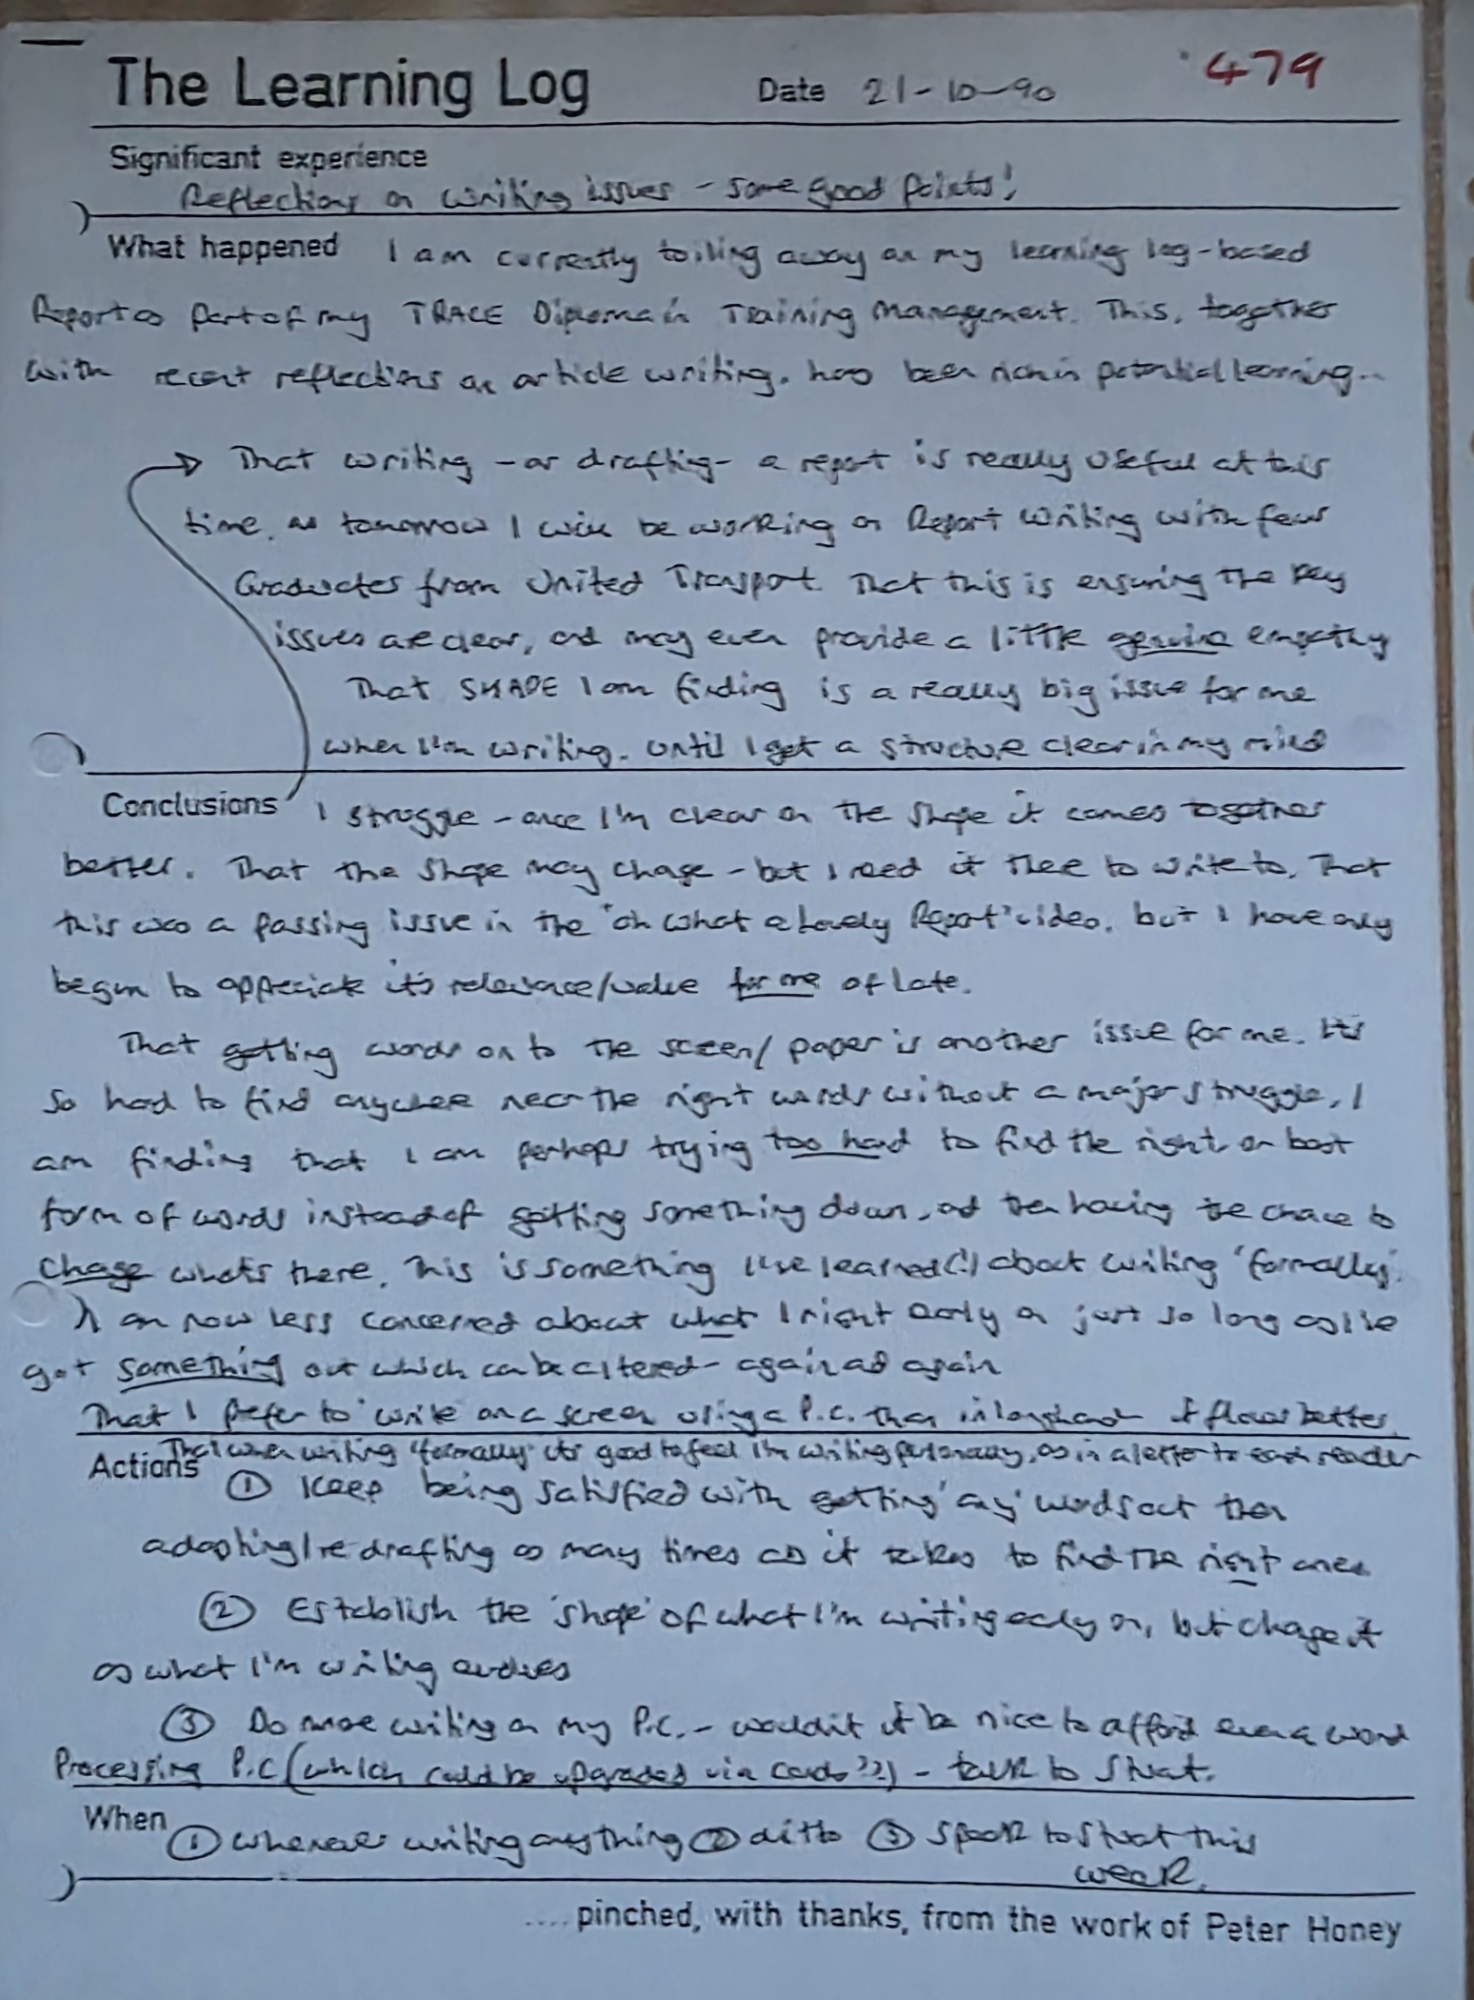 The Learning Log Date 21-10-90 479
Significant experience
Reflections on writing issues - some good points!
What happened I am currently toiling away on my learning log-based
Report as part of my TRACE Diploma in Training Management. This, together
with recent reflections on article writing, has been rich in potential learning..
That writing - or drafting - a report is really useful at this
time, as tomorrow I will be working on Report Writing with four
Graduates from United Transport. That this is ensuring the key
issues are clear, and may even provide a little genuine empathy
That SHAPE I am finding is a really big issue for me
when I'm writing. Until I get a structure clear in my mind
Conclusions I struggle - once I'm clear on the shape it comes together
better. That the shape may change - but I need it there to write to. That
this was a passing issue in the 'oh what a Lovely Report' video, but I have only
begun to appreciate it's relevance/value for me of late.
That getting words on to the screen/paper is another issue for me. It's
so hard to find anywhere near the right words without a major struggle. I
am finding that I am perhaps trying too hard to find the right or best
form of words instead of getting something down, and then having the chance to
change whats there. This is something I've learned(!) about writing 'formally'.
I am now less concerned about what I right early on just so long as I've
got something out which can be altered - again and again
That I prefer to write on a screen using a P.C. than in longhand - it flows better.
That when writing 'formally' it's good to feel I'm writing personally, as in a letter to each reader
Actions ① Keep being satisfied with getting 'any' words out then
adapting/re-drafting as many times as it takes to find the right ones.
② Establish the 'shape' of what I'm writing early on, but change it
as what I'm writing evolves
③ Do more writing on my P.C. - wouldn't it be nice to afford even a word
Processing P.C (which could be upgraded via cards??) - talk to Stuart.
When ① whenever writing anything ② ditto ③ speak to Stuart this
week.
....pinched, with thanks, from the work of Peter Honey